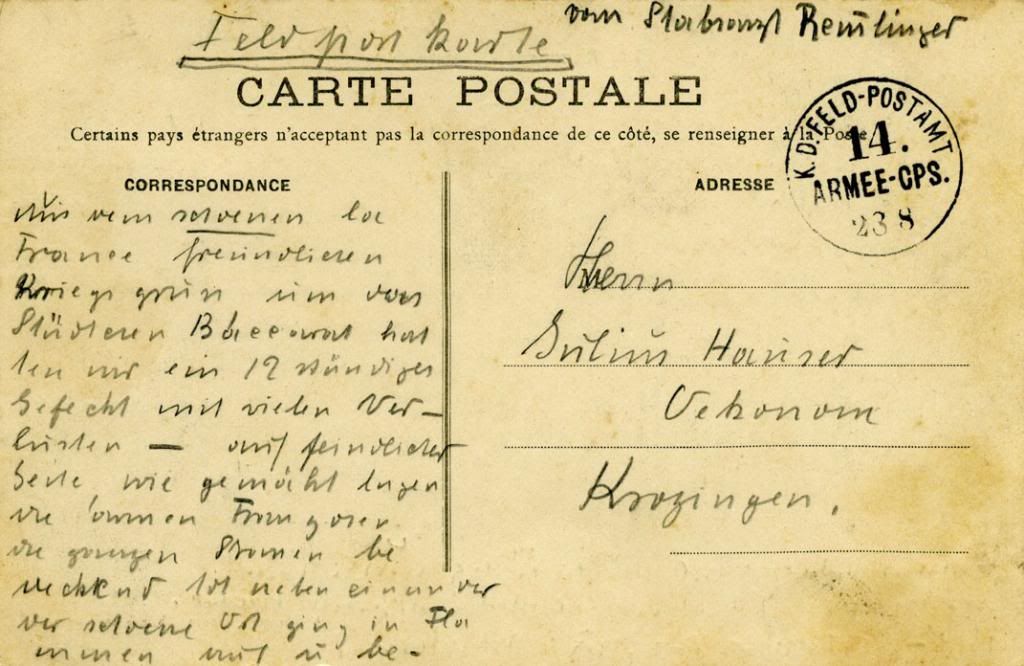 Feldpostkarte
vom Stabsarzt Remlinger
CARTE POSTALE
Certains pays étrangers n'acceptant pas la correspondance de ce côté, se renseigner à la Poste
K. D. FELD-POSTAMT
14.
ARMEE-CPS.
23 8
CORRESPONDANCE
Aus dem schoenen la
France freundlichen
Kriegsgruss um das
Städtchen Baccarat hat
ten wir ein 12 stündiges
Gefecht mit vielen Ver-
lusten — auf feindlicher
Seite, wie gemäht lagen
die armen Franzosen
die ganzen Strassen be
deckend tot neben einander
der schoene Ort ging in Fla
mmen auf u be-
ADRESSE
Herrn
Julius Hauser
Oekonom
Krozingen.